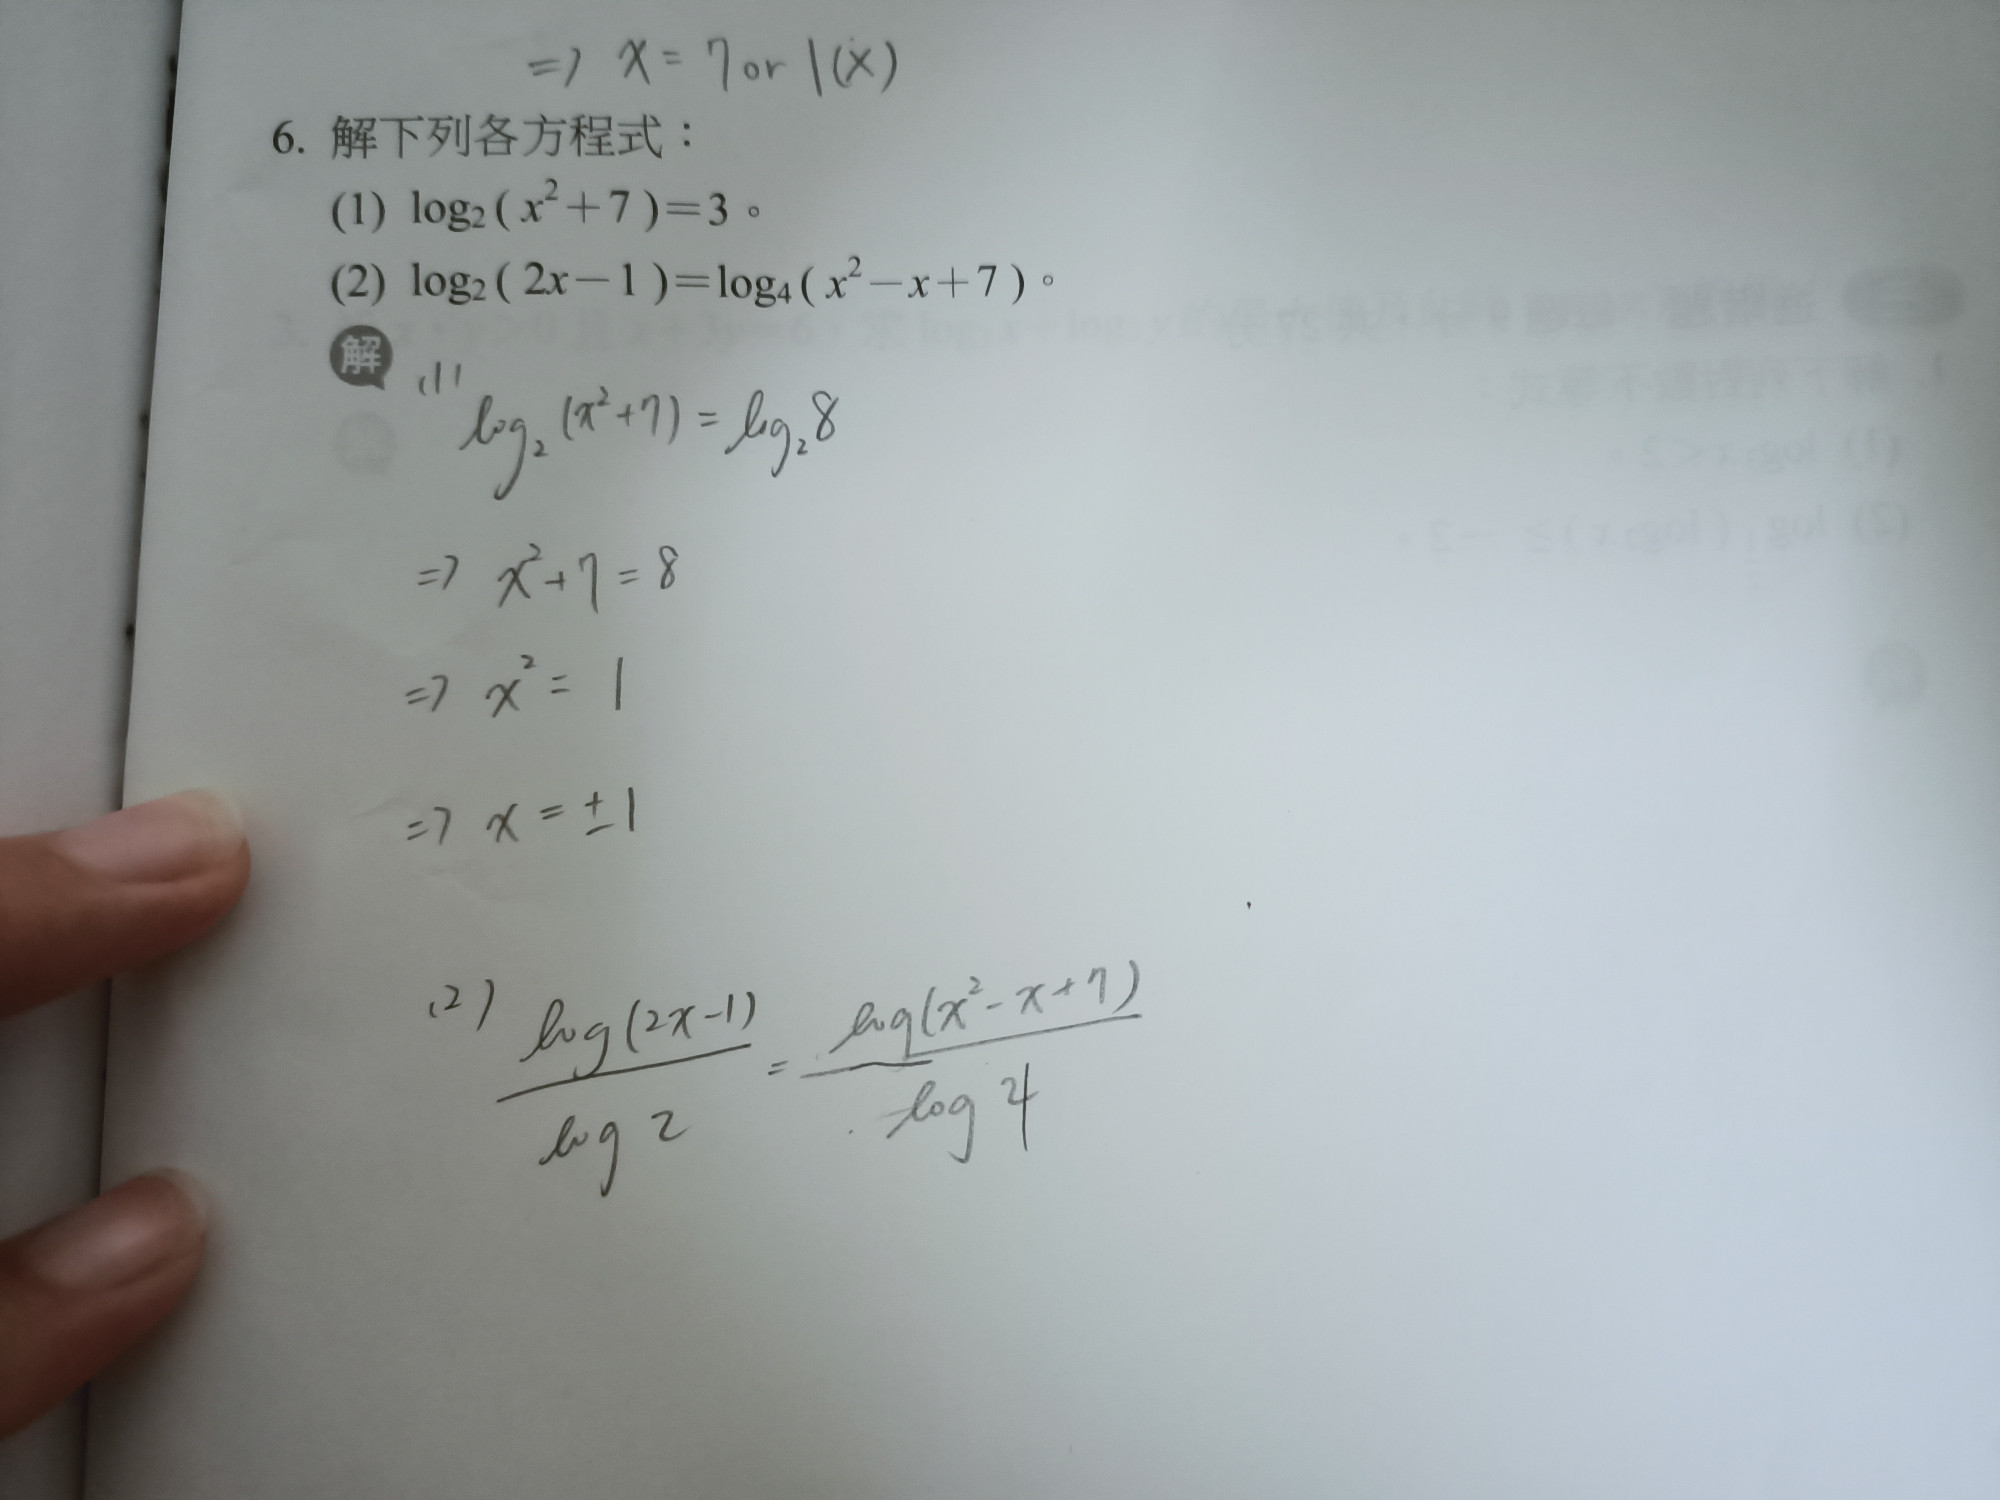 => x = 7 or 1(x)
6. 解下列各方程式：
(1) log₂(x²+7)=3。
(2) log₂(2x−1)=log₄(x²−x+7)。
解
(1)
log₂(x²+7) = log₂8
=> x²+7 = 8
=> x² = 1
=> x = ±1
(2) log(2x-1) / log 2 = log(x²-x+7) / log 4